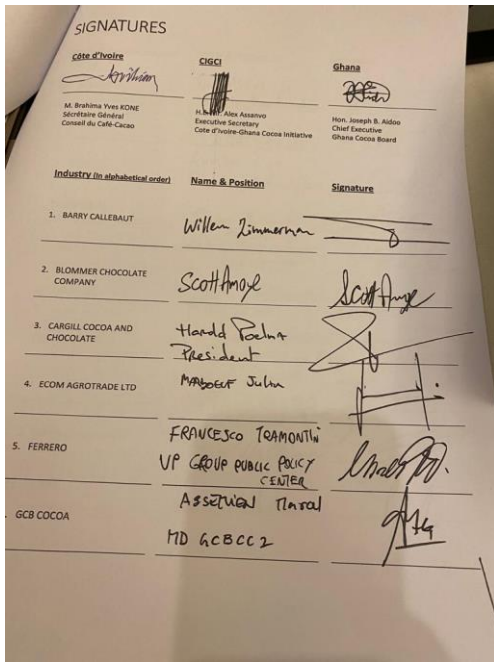 SIGNATURES
Côte d'Ivoire CIGCI Ghana
M. Brahima Yves KONE
Sécrétaire Général
Conseil du Café-Cacao
H.E. Mr. Alex Assanvo
Executive Secretary
Cote d'Ivoire-Ghana Cocoa Initiative
Hon. Joseph B. Aidoo
Chief Executive
Ghana Cocoa Board
Industry (in alphabetical order) Name & Position Signature
1. BARRY CALLEBAUT Willem Zimmerman
2. BLOMMER CHOCOLATE
COMPANY
Scott Amoye Scott Amoye
3. CARGILL COCOA AND
CHOCOLATE
Harold Poelma
President
4. ECOM AGROTRADE LTD Julien
5. FERRERO
FRANCESCO TRAMONTIN
VP GROUP PUBLIC POLICY
CENTER
GCB COCOA
MD GCBCC2